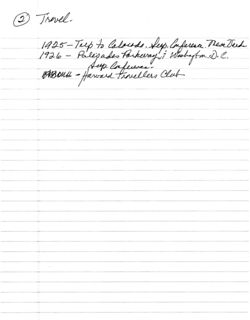 ② Travel.
1925 – Trip to Colorado. Sup. Conference.
1926 – Palisades Parkway & Washington D.C.
Sup. Conference.
– Harvard Travellers Club